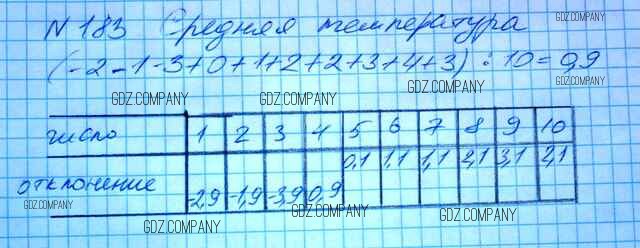 N 183 Средняя температура
(-2-1-3+0+1+2+2+3+4+3) : 10 = 0,9
число 1 2 3 4 5 6 7 8 9 10
отклонение -2,9 -1,9 -3,9 0,9 0,1 1,1 1,1 2,1 3,1 2,1
GDZ.COMPANY
GDZ.COMPANY
GDZ.COMPANY
GDZ.COMPANY
GDZ.COMPANY
GDZ.COMPANY
GDZ.COMPANY
GDZ.COMPANY
GDZ.COMPANY
GDZ.COMPANY
GDZ.COMPANY